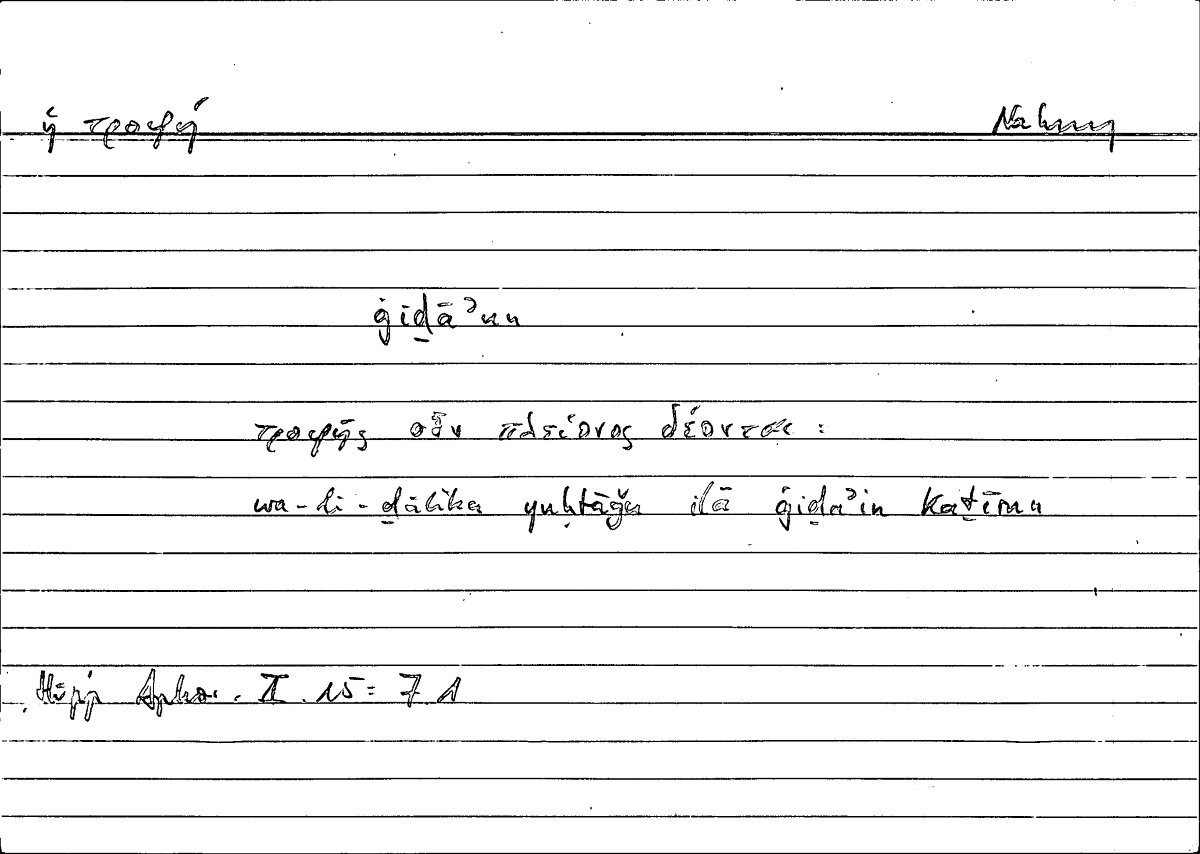 ἡ τροφή Nahrung
ġiḏāʾun
τροφῆς οὖν πλείονος δέονται :
wa-li-ḏālika yuḥtāǧu ilā ġiḏaʾin kaṯīrin
Hipp Aphor. I. 15 = 7. 1